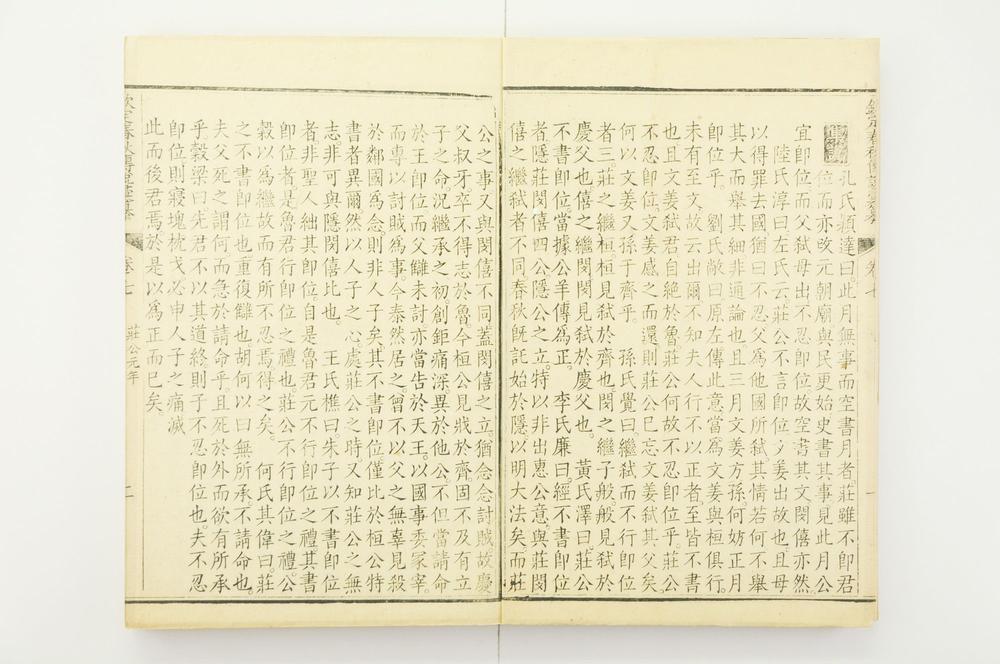 欽定春秋傳說彙纂 卷七 一
集說 孔氏穎達曰此月無事而空書月者莊雖不即君
位而亦改元朝廟與民更始史書其事見此月公
宜即位而父弒母出不忍即位故空書其文閔僖亦然
陸氏淳曰左氏云莊公不言即位文姜出故也且母
以得罪去國猶曰不忍父爲他國所弒其情若何不舉
其大而舉其細非通論也且三月文姜方孫何妨正月
即位乎 劉氏敞曰原左傳此意當爲文姜與桓俱行
未有至文故云出爾不知夫人行不以正者至皆不書
也且文姜弒君自絕於魯莊公何故不忍即位乎莊公
不忍即位文姜感之而還則莊公已忘文姜弒其父矣
何以文姜又孫于齊乎 孫氏覺曰繼弒而不行即位
者三莊之繼桓桓見弒於齊也閔之繼子般般見弒於
慶父也僖之繼閔閔見弒於慶父也 黃氏澤曰莊公
不書即位當據公羊傳爲正 李氏廉曰經不書即位
者隱莊閔僖四公隱公之立特以非出惠公意與莊閔
僖之繼弒者不同春秋旣託始於隱以明大法矣而莊
公之事又與閔僖不同蓋閔僖之立猶念念討賊故慶
父叔牙卒不得志於魯今桓公見戕於齊固不及有立
子之命況繼承之初創鉅痛深異於他公不但當請命
於王即位而父讎未討亦當告於天王以國事委冢宰
而專以討賊爲事今泰然居之曾不以父之無辜見殺
於鄰國爲念則非人子矣其不書即位僅比於桓公特
書者異爾然以人子之心處莊公之時又知莊公之無
志非可與隱閔僖比也 王氏樵曰朱子以不書即位
者非聖人絀其即位自是魯君元不行即位之禮其書
即位者是魯君行即位之禮也莊公不行即位之禮公
穀以爲繼故而有所不忍焉得之矣 何氏其偉曰莊
之不書即位也重復讎也胡何以曰無所承不請命也
夫父死之謂何而急於請命乎且死於外而欲有所承
乎穀梁曰先君不以其道終則子不忍即位也夫不忍
即位則寢塊枕戈必申人子之痛滅
此而後君焉於是以爲正而已矣
欽定春秋傳說彙纂 卷七 莊公元年 二